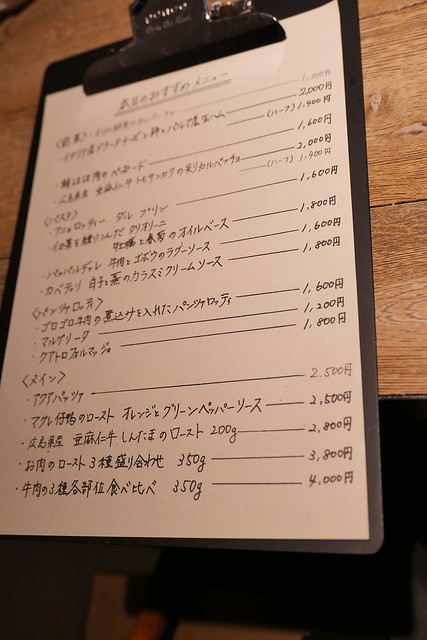 本日のおすすめメニュー
〈前菜〉
1,200円
・イタリア産ブラータチーズと柿とパルマ産生ハム 2,000円
(ハーフ) 1,400円
1,600円
・広島県産 亜麻仁牛トモサンカクの炙りカルパッチョ 2,000円
(ハーフ) 1,400円
〈パスタ〉
・アニョロッティー ダル プリン 1,600円
・イカ墨を練りこんだタリオリーニ
牡蠣と春菊のオイルベース 1,800円
・パッパルデッレ 牛肉とゴボウのラグーソース 1,600円
・カバテッリ 白子と蕪のカラスミクリームソース 1,800円
〈パンツェロッティ〉
・ゴロゴロ牛肉の煮込みを入れたパンツェロッティ 1,600円
・マルゲリータ 1,200円
・クアトロフォルマッジョ 1,800円
〈メイン〉
・アクアパッツァ 2,500円
・マグレ仔鴨のロースト オレンジとグリーンペッパーソース 2,500円
・広島県産 亜麻仁牛 しんたまのロースト 200g 2,800円
・お肉のロースト3種盛り合わせ 350g 3,800円
・牛肉の3種各部位食べ比べ 350g 4,000円